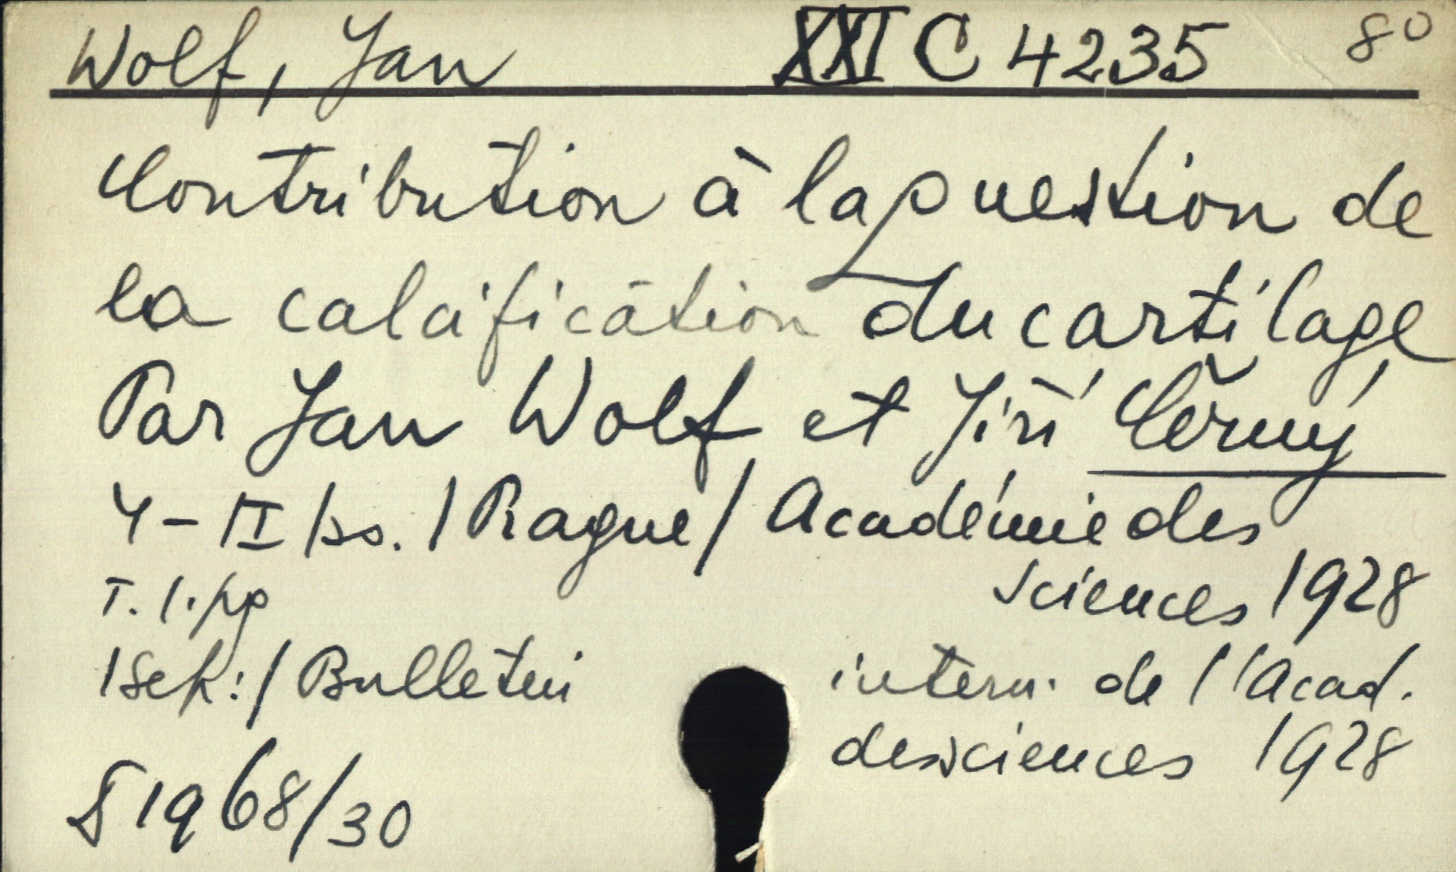 Wolf, Jan XXI C 4235 8°
Contribution à la question de
la calcification du cartilage
Par Jan Wolf et Jiří Černý
4-II
/Prague/ Académie des
sciences 1928
T. 1. pg
/Sep.:/ Bulletin intern. de l'Acad.
des sciences 1928
§ 1968/30